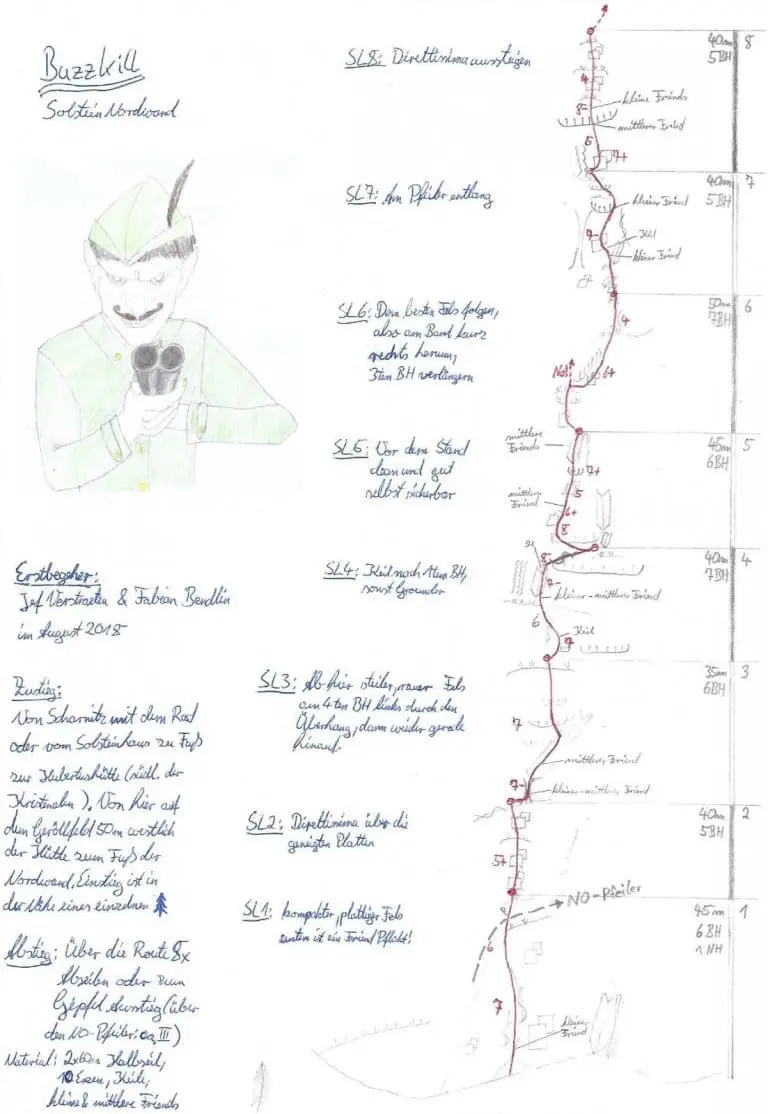 Buzzkill
Solstein Nordwand
Erstbegeher:
Jef Verstraeten & Fabian Bendlin
im August 2018
Zustieg:
Von Scharnitz mit dem Rad
oder vom Solsteinhaus zu Fuß
zur Hubertushütte (südl. der
Kristenalm). Von hier auf
dem Geröllfeld 50m westlich
der Hütte zum Fuß der
Nordwand, Einstieg ist in
der Nähe eines einzelnen
Abstieg: Über die Route 8x
Abseilen oder zum
Gipfel Ausstieg (über
den NO-Pfeiler: ca. III)
Material: 2x60m Halbseil,
10 Exen, Keile,
kleine & mittlere Friends
SL8: Direttissima aussteigen
SL7: Am Pfeiler entlang
SL6: Dem besten Fels folgen,
also am Band kurz
rechts herum,
3ten BH verlängern
SL5: Vor dem Stand
clean und gut
selbst sicherbar
SL4: Keil nach 1tem BH,
sonst Grounder
SL3: Ab hier steiler, rauer Fels
am 4ten BH links durch den
Überhang, dann wieder gerade
hinauf.
SL2: Direttissima über die
geneigten Platten
SL1: kompakter, plattiger Fels
unten ist ein Friend Pflicht!
40m 8
5BH
4
kleine Friends
8-
mittlerer Friend
6
7+
40m 7
5BH
kleiner Friend
7-
Keil
kleiner Friend
50m 6
7BH
4
No!
6+
45m 5
6BH
mittlere
Friends
7+
5
mittlerer
Friend
6+
8
40m 4
7BH
8-
7-
kleiner-mittlerer Friend
6
Keil
7
35m 3
6BH
7
mittlerer Friend
7-
kleiner-mittlerer Friend
40m 2
5BH
5+
NO-Pfeiler
45m 1
6 BH
1 NH
6
7
kleiner
Friend